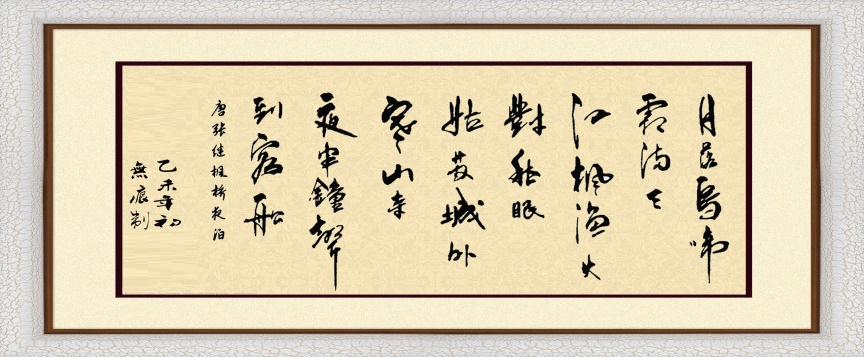 月落烏啼
霜满天
江枫渔火
對愁眠
姑苏城外
寒山寺
夜半鐘聲
到客船
唐张继枫桥夜泊
乙未年初
無痕制